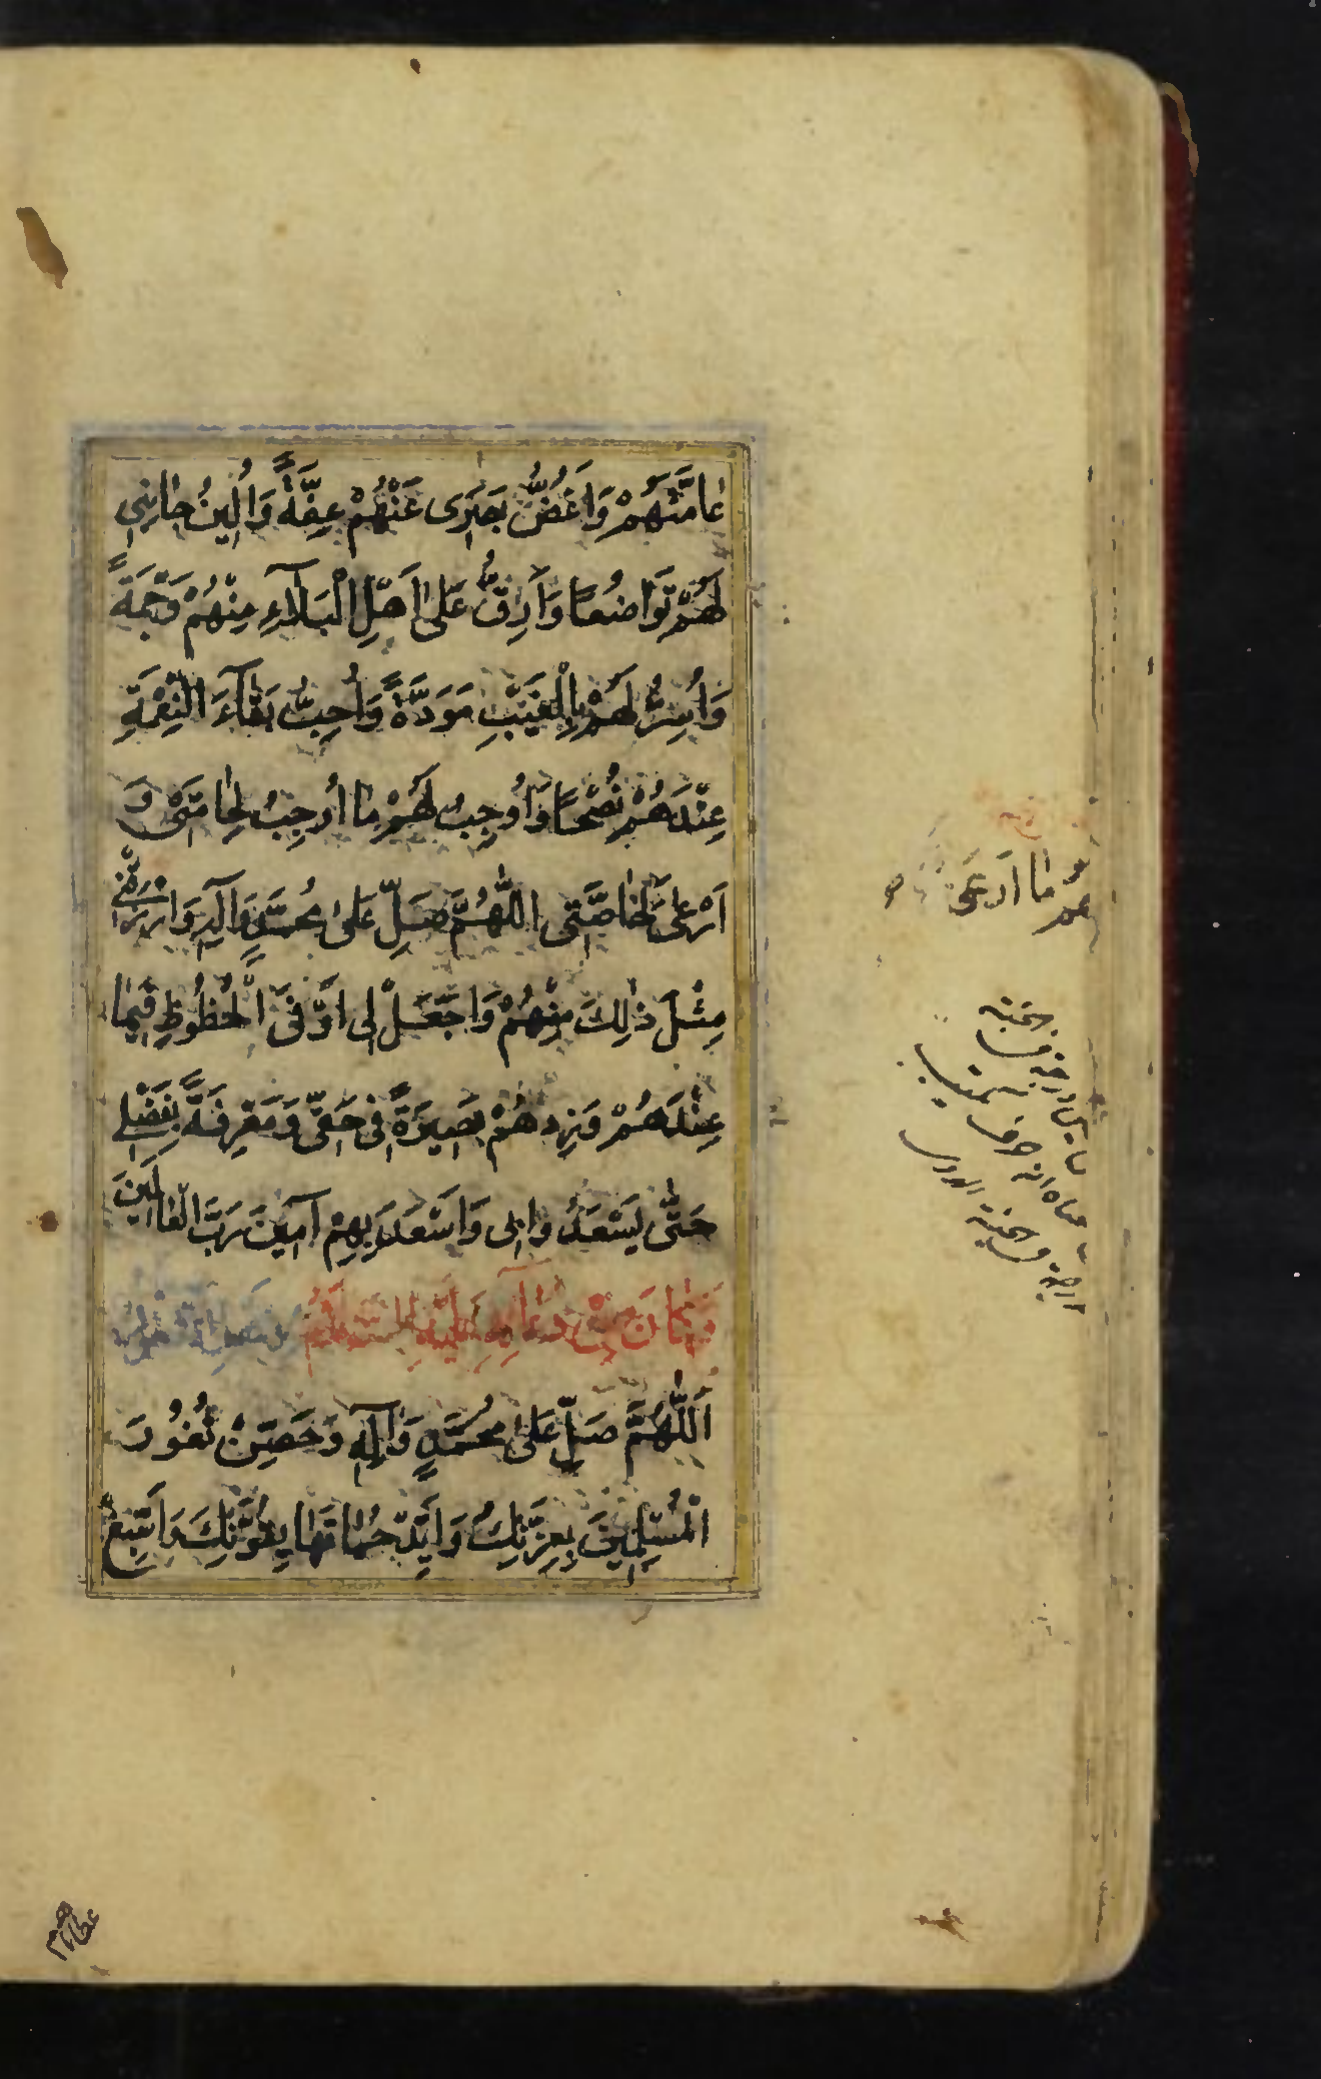 عَامَّتَهُمْ وَاَغُضُّ بَصَرِى عَنْهُمْ عِفَّةً وَاُلِينُ جَانِبِى
لَهُمْ تَوَاضُعًا وَاَرِقُّ عَلٰى اَهْلِ الْبَلَآءِ مِنْهُمْ رَحْمَةً
وَاُسِرُّ لَهُمْ بِالْغَيْبِ مَوَدَّةً وَاُحِبُّ بَقَآءَ النِّعْمَةِ
عِنْدَهُمْ نُصْحًا وَاُوجِبُ لَهُمْ مَا اُوجِبُ لِحَامَّتِى وَ
اَرْعٰى لِخَاصَّتِى اللّٰهُمَّ صَلِّ عَلٰى مُحَمَّدٍ وَآلِهِ وَارْزُقْنِى
مِثْلَ ذٰلِكَ مِنْهُمْ وَاجْعَلْ لِى اَوْفَى الْحُظُوظِ فِيمَا
عِنْدَهُمْ وَزِدْهُمْ بَصِيرَةً فِى حَقِّى وَمَعْرِفَةً بِفَضْلِى
حَتّٰى يَسْعَدُوا بِى وَاَسْعَدَ بِهِمْ آمِينَ رَبَّ الْعَالَمِينَ
وَكَانَ مِنْ دُعَآئِهِ عَلَيْهِ السَّلَامُ
اَللّٰهُمَّ صَلِّ عَلٰى مُحَمَّدٍ وَآلِهِ وَحَصِّنْ ثُغُورَ
الْمُسْلِمِينَ بِعِزَّتِكَ وَاَيِّدْ حُمَاتَهَا بِقُوَّتِكَ وَاَسْبِغْ
لهم ما ارعى